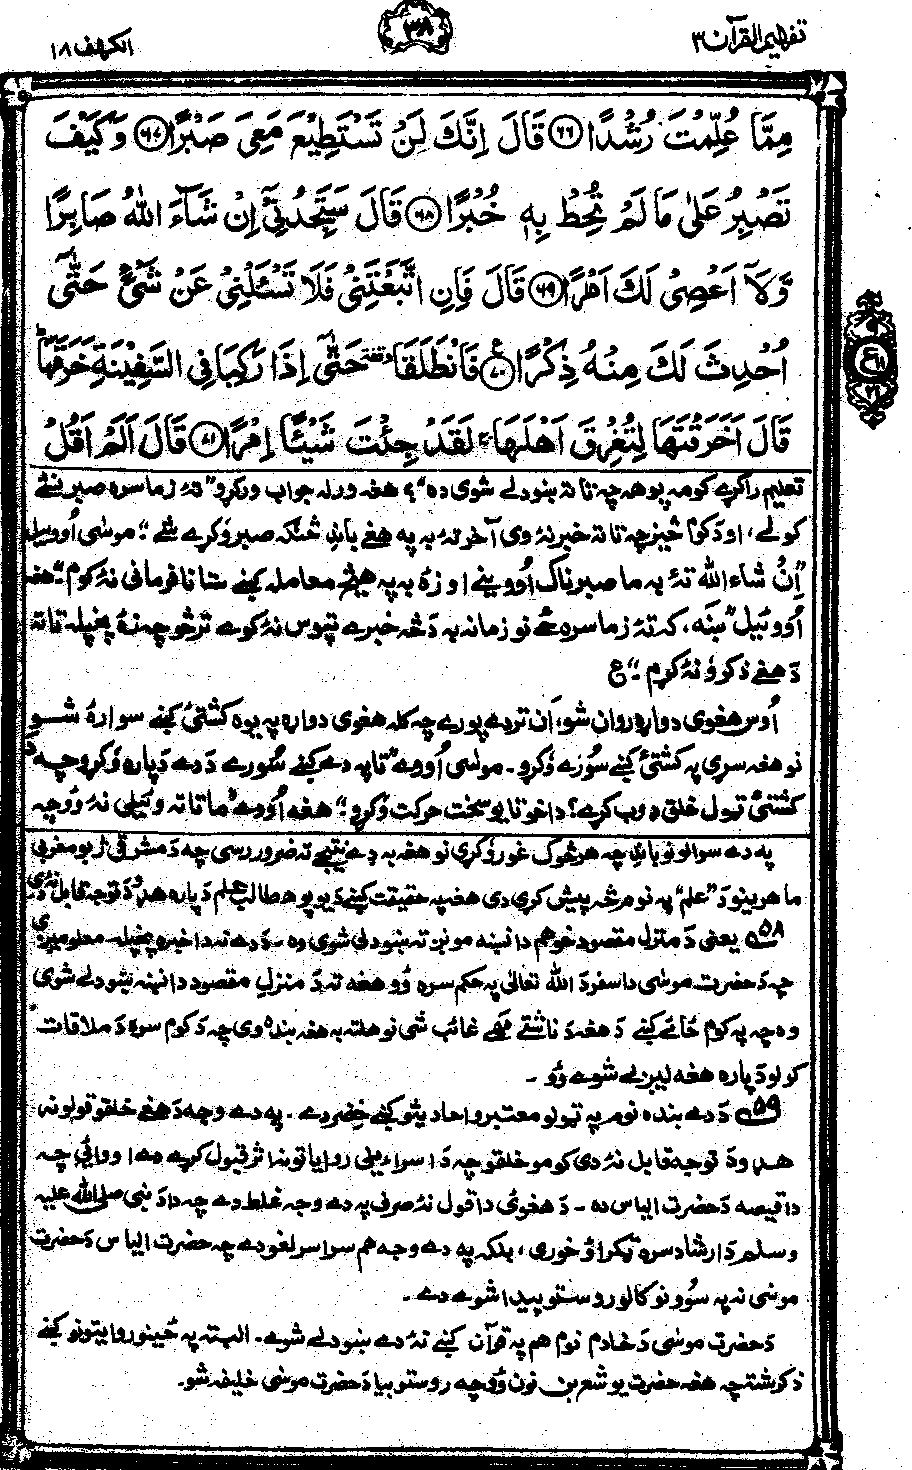 تفهیم القرآن ۳
۳۸
الکهف ۱۸
مِمَّا عُلِّمْتَ رُشْدًا ﴿۶۶﴾ قَالَ اِنَّكَ لَنْ تَسْتَطِيْعَ مَعِىَ صَبْرًا ﴿۶۷﴾ وَكَيْفَ
تَصْبِرُ عَلٰى مَا لَمْ تُحِطْ بِهٖ خُبْرًا ﴿۶۸﴾ قَالَ سَتَجِدُنِيْٓ اِنْ شَآءَ اللّٰهُ صَابِرًا
وَّلَآ اَعْصِىْ لَكَ اَمْرًا ﴿۶۹﴾ قَالَ فَاِنِ اتَّبَعْتَنِىْ فَلَا تَسْـَٔلْنِىْ عَنْ شَىْءٍ حَتّٰٓى
اُحْدِثَ لَكَ مِنْهُ ذِكْرًا ﴿۷۰﴾ ع فَانْطَلَقَا وقفة حَتّٰٓى اِذَا رَكِبَا فِى السَّفِيْنَةِ خَرَقَهَا ط
قَالَ اَخَرَقْتَهَا لِتُغْرِقَ اَهْلَهَا ج لَقَدْ جِئْتَ شَيْـًٔا اِمْرًا ﴿۷۱﴾ قَالَ اَلَمْ اَقُلْ
تعلیم راکړے کوم چه تا ته ښودلے شوی ده“؟ هغه ورله جواب ورکړو” تهٔ زما سره صبر نشے
کولے، او دکوم څیز چه تا ته خبر نهٔ وی آخر تهٔ به په هغے باندِ څنګه صبر وٗکړے شے“! موسٰی اُووئیل
”اِنْ شاء الله تهٔ به ما صبرناک اُووینے او زهٔ به په هیڅ معامله کښے ستا نافرمانی نهٔ کوم“ هغه
اُووئیل” ښه، که تهٔ زما سره ځے نو زمانه به دَ څه خبرے تپوس نهٔ کوے ترڅو چه زهٔ پخپله تا ته
دَ هغے ذکر وٗ نهٔ کړم“۔ ع
اُوس هغوی دواړه روان شو، اَن تردے پورے چه کله هغوی دواړه په یوه کشتیٔ کښے سوارهٔ شو
نو هغه سړی په کشتیٔ کښے سُوړے وٗکړو۔ موسٰی اُووے” تا په دے کښے سُوړے دَ دے دَپاره وٗکړو چه دَ
کشتیٔ ټول خلق ډوب کړے؟ دا خو تا یو سخت حرکت وٗکړو“! هغه اُووے” ما تا ته وئیلی نهٔ وٗو چه
په دے سوالونو باندِ چه هر څوک غور وٗکړی نو هغه به دِے نتیجے ته ضرور رسی چه دَ مشرقی ژبو مغربی
ماهرینو دَ”علم“ په نوم څه پیش کړی دی هغه په حقیقت کښے دَ یو پوهه طالب علم دَپاره هډو دَ توجه قابل نهٔ دَی
۵۸ یعنی دَ منزل مقصود خو هم دا نښه مونږ ته ښودلی شوی وه۔ دَ دے نه دا خبره پخپله معلومیږی
چه دَ حضرت موسٰی دا سفر دَ الله تعالٰی په حکم سره وٗو هغه ته دَ منزلِ مقصود دا نښه ښودلے شوی
وه چه په کوم ځائے کښے دَ هغه دَ ناشتے مهے غائب شی نو هلته به هغه بنده وی چه دَ کوم سره دَ ملاقات
کولو دَپاره هغه لیږلے شوے وٗو۔
۵۹ دَ دے بنده نوم په ټولو معتبرو احادیثو کښے خِضر دے۔ په دے وجه دَ هغے خلقو قولونه
هډو دَ توجه قابل نهٔ دی کومو خلقو چه دَ اسراءیلی روایاتو نه اثر قبول کړے دے او وائی چه
دا قیصه دَ حضرت الیاس ده۔ دَ هغوئ دا قول نهٔ صرف په دے وجه غلط دے چه دا دَ نبی صلی الله علیه
وسلم دَ ارشاد سره ټکراؤ خوری، بلکه په دے وجه هم سراسر لغو دے چه حضرت الیاس دَ حضرت
موسٰی نه په سوُو نو کالو روستو پیدا شوے دے۔
دَ حضرت موسٰی دَ خادم نوم هم په قرآن کښے نهٔ دے ښودلے شوے۔ البته په ځینو روایتونو کښے
ذکر شته چه هغه حضرت یوشع بن نون وٗو چه روستو بیا دَ حضرت موسٰی خلیفه شو۔